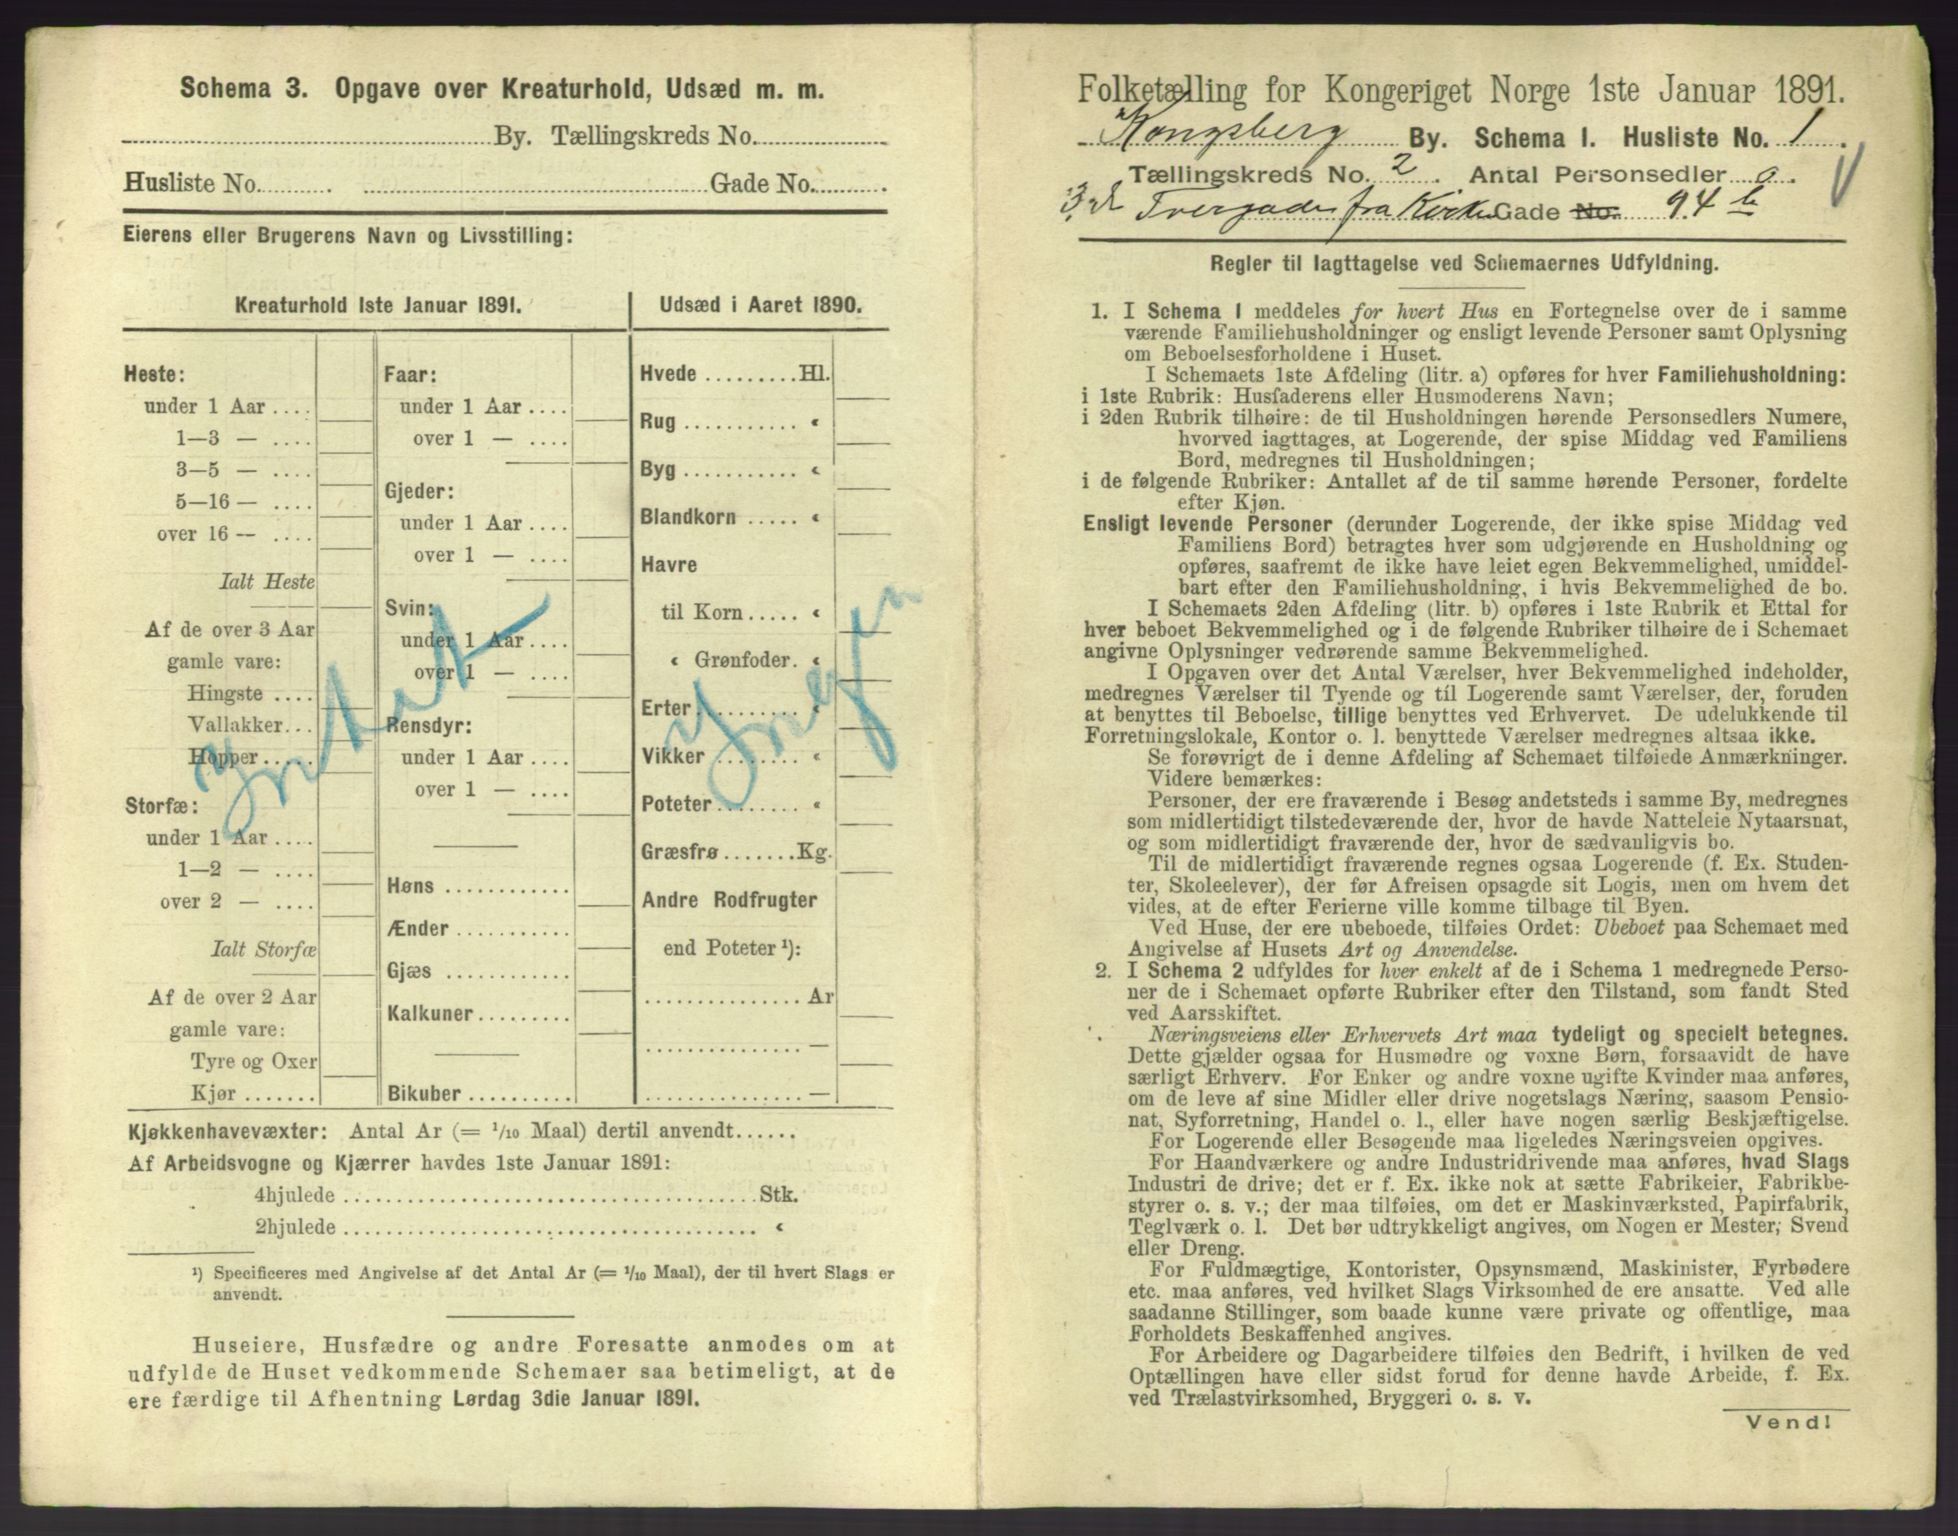 Schema 3. Opgave over Kreaturhold, Udsæd m. m.
By. Tællingskreds No.
Husliste No. Gade No.
Eierens eller Brugerens Navn og Livsstilling:
Kreaturhold 1ste Januar 1891.
Heste:
under 1 Aar
1—3 —
3—5 —
5—16 —
over 16 —
Ialt Heste
Af de over 3 Aar
gamle vare:
Hingste
Vallakker
Hopper
Storfæ:
under 1 Aar
1—2 —
over 2 —
Ialt Storfæ
Af de over 2 Aar
gamle vare:
Tyre og Oxer
Kjør
Faar:
under 1 Aar
over 1 —
Gjeder:
under 1 Aar
over 1 —
Svin:
under 1 Aar
over 1 —
Rensdyr:
under 1 Aar
over 1 —
Høns
Ænder
Gjæs
Kalkuner
Bikuber
Intet
Udsæd i Aaret 1890.
Hvede Hl.
Rug "
Byg "
Blandkorn "
Havre
til Korn "
" Grønfoder. "
Erter "
Vikker "
Poteter "
Græsfrø Kg.
Andre Rodfrugter
end Poteter ¹):
Ar
—
—
Ingen
Kjøkkenhavevæxter: Antal Ar (= 1/10 Maal) dertil anvendt
Af Arbeidsvogne og Kjærrer havdes 1ste Januar 1891:
4hjulede Stk.
2hjulede "
¹) Specificeres med Angivelse af det Antal Ar (= 1/10 Maal), der til hvert Slags er
anvendt.
Huseiere, Husfædre og andre Foresatte anmodes om at
udfylde de Huset vedkommende Schemaer saa betimeligt, at de
ere færdige til Afhentning Lørdag 3die Januar 1891.
Folketælling for Kongeriget Norge 1ste Januar 1891.
Kongsberg By. Schema 1. Husliste No. 1.
Tællingskreds No. 2. Antal Personsedler 0.
3die Tvergade fra Kirke Gade No. 94 b
Regler til Iagttagelse ved Schemaernes Udfyldning.
1. I Schema 1 meddeles for hvert Hus en Fortegnelse over de i samme
værende Familiehusholdninger og ensligt levende Personer samt Oplysning
om Beboelsesforholdene i Huset.
I Schemaets 1ste Afdeling (litr. a) opføres for hver Familiehusholdning:
i 1ste Rubrik: Husfaderens eller Husmoderens Navn;
i 2den Rubrik tilhøire: de til Husholdningen hørende Personsedlers Numere,
hvorved iagttages, at Logerende, der spise Middag ved Familiens
Bord, medregnes til Husholdningen;
i de følgende Rubriker: Antallet af de til samme hørende Personer, fordelte
efter Kjøn.
Ensligt levende Personer (derunder Logerende, der ikke spise Middag ved
Familiens Bord) betragtes hver som udgjørende en Husholdning og
opføres, saafremt de ikke have leiet egen Bekvemmelighed, umiddel-
bart efter den Familiehusholdning, i hvis Bekvemmelighed de bo.
I Schemaets 2den Afdeling (litr. b) opføres i 1ste Rubrik et Ettal for
hver beboet Bekvemmelighed og i de følgende Rubriker tilhøire de i Schemaet
angivne Oplysninger vedrørende samme Bekvemmelighed.
I Opgaven over det Antal Værelser, hver Bekvemmelighed indeholder,
medregnes Værelser til Tyende og til Logerende samt Værelser, der, foruden
at benyttes til Beboelse, tillige benyttes ved Erhvervet. De udelukkende til
Forretningslokale, Kontor o. l. benyttede Værelser medregnes altsaa ikke.
Se forøvrigt de i denne Afdeling af Schemaet tilføiede Anmærkninger.
Videre bemærkes:
Personer, der ere fraværende i Besøg andetsteds i samme By, medregnes
som midlertidigt tilstedeværende der, hvor de havde Natteleie Nytaarsnat,
og som midlertidigt fraværende der, hvor de sædvanligvis bo.
Til de midlertidigt fraværende regnes ogsaa Logerende (f. Ex. Studen-
ter, Skoleelever), der før Afreisen opsagde sit Logis, men om hvem det
vides, at de efter Ferierne ville komme tilbage til Byen.
Ved Huse, der ere ubeboede, tilføies Ordet: Ubeboet paa Schemaet med
Angivelse af Husets Art og Anvendelse.
2. I Schema 2 udfyldes for hver enkelt af de i Schema 1 medregnede Perso-
ner de i Schemaet opførte Rubriker efter den Tilstand, som fandt Sted
ved Aarsskiftet.
Næringsveiens eller Erhvervets Art maa tydeligt og specielt betegnes.
Dette gjælder ogsaa for Husmødre og voxne Børn, forsaavidt de have
særligt Erhverv. For Enker og andre voxne ugifte Kvinder maa anføres,
om de leve af sine Midler eller drive nogetslags Næring, saasom Pensio-
nat, Syforretning, Handel o. l., eller have nogen særlig Beskjæftigelse.
For Logerende eller Besøgende maa ligeledes Næringsveien opgives.
For Haandværkere og andre Industridrivende maa anføres, hvad Slags
Industri de drive; det er f. Ex. ikke nok at sætte Fabrikeier, Fabrikbe-
styrer o. s. v.; der maa tilføies, om det er Maskinværksted, Papirfabrik,
Teglværk o. l. Det bør udtrykkeligt angives, om Nogen er Mester, Svend
eller Dreng.
For Fuldmægtige, Kontorister, Opsynsmænd, Maskinister, Fyrbødere
etc. maa anføres, ved hvilket Slags Virksomhed de ere ansatte. Ved alle
saadanne Stillinger, som baade kunne være private og offentlige, maa
Forholdets Beskaffenhed angives.
For Arbeidere og Dagarbeidere tilføies den Bedrift, i hvilken de ved
Optællingen have eller sidst forud for denne havde Arbeide, f. Ex.
ved Trælastvirksomhed, Bryggeri o. s. v.
Vend!